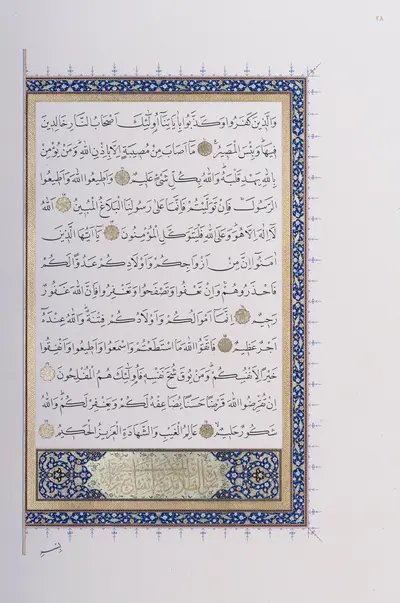 ٢٨
وَالَّذِينَ كَفَرُوا وَكَذَّبُوا بِآيَاتِنَا أُولَٰئِكَ أَصْحَابُ النَّارِ خَالِدِينَ
فِيهَا وَبِئْسَ الْمَصِيرُ مَا أَصَابَ مِنْ مُصِيبَةٍ إِلَّا بِإِذْنِ اللَّهِ وَمَنْ يُؤْمِنْ
بِاللَّهِ يَهْدِ قَلْبَهُ وَاللَّهُ بِكُلِّ شَيْءٍ عَلِيمٌ وَأَطِيعُوا اللَّهَ وَأَطِيعُوا
الرَّسُولَ فَإِنْ تَوَلَّيْتُمْ فَإِنَّمَا عَلَى رَسُولِنَا الْبَلَاغُ الْمُبِينُ اللَّهُ
لَا إِلَهَ إِلَّا هُوَ وَعَلَى اللَّهِ فَلْيَتَوَكَّلِ الْمُؤْمِنُونَ يَا أَيُّهَا الَّذِينَ
آمَنُوا إِنَّ مِنْ أَزْوَاجِكُمْ وَأَوْلَادِكُمْ عَدُوًّا لَكُمْ
فَاحْذَرُوهُمْ وَإِنْ تَعْفُوا وَتَصْفَحُوا وَتَغْفِرُوا فَإِنَّ اللَّهَ غَفُورٌ
رَحِيمٌ إِنَّمَا أَمْوَالُكُمْ وَأَوْلَادُكُمْ فِتْنَةٌ وَاللَّهُ عِنْدَهُ
أَجْرٌ عَظِيمٌ فَاتَّقُوا اللَّهَ مَا اسْتَطَعْتُمْ وَاسْمَعُوا وَأَطِيعُوا وَأَنْفِقُوا
خَيْرًا لِأَنْفُسِكُمْ وَمَنْ يُوقَ شُحَّ نَفْسِهِ فَأُولَٰئِكَ هُمُ الْمُفْلِحُونَ
إِنْ تُقْرِضُوا اللَّهَ قَرْضًا حَسَنًا يُضَاعِفْهُ لَكُمْ وَيَغْفِرْ لَكُمْ وَاللَّهُ
شَكُورٌ حَلِيمٌ عَالِمُ الْغَيْبِ وَالشَّهَادَةِ الْعَزِيزُ الْحَكِيمُ
بِسْمِ